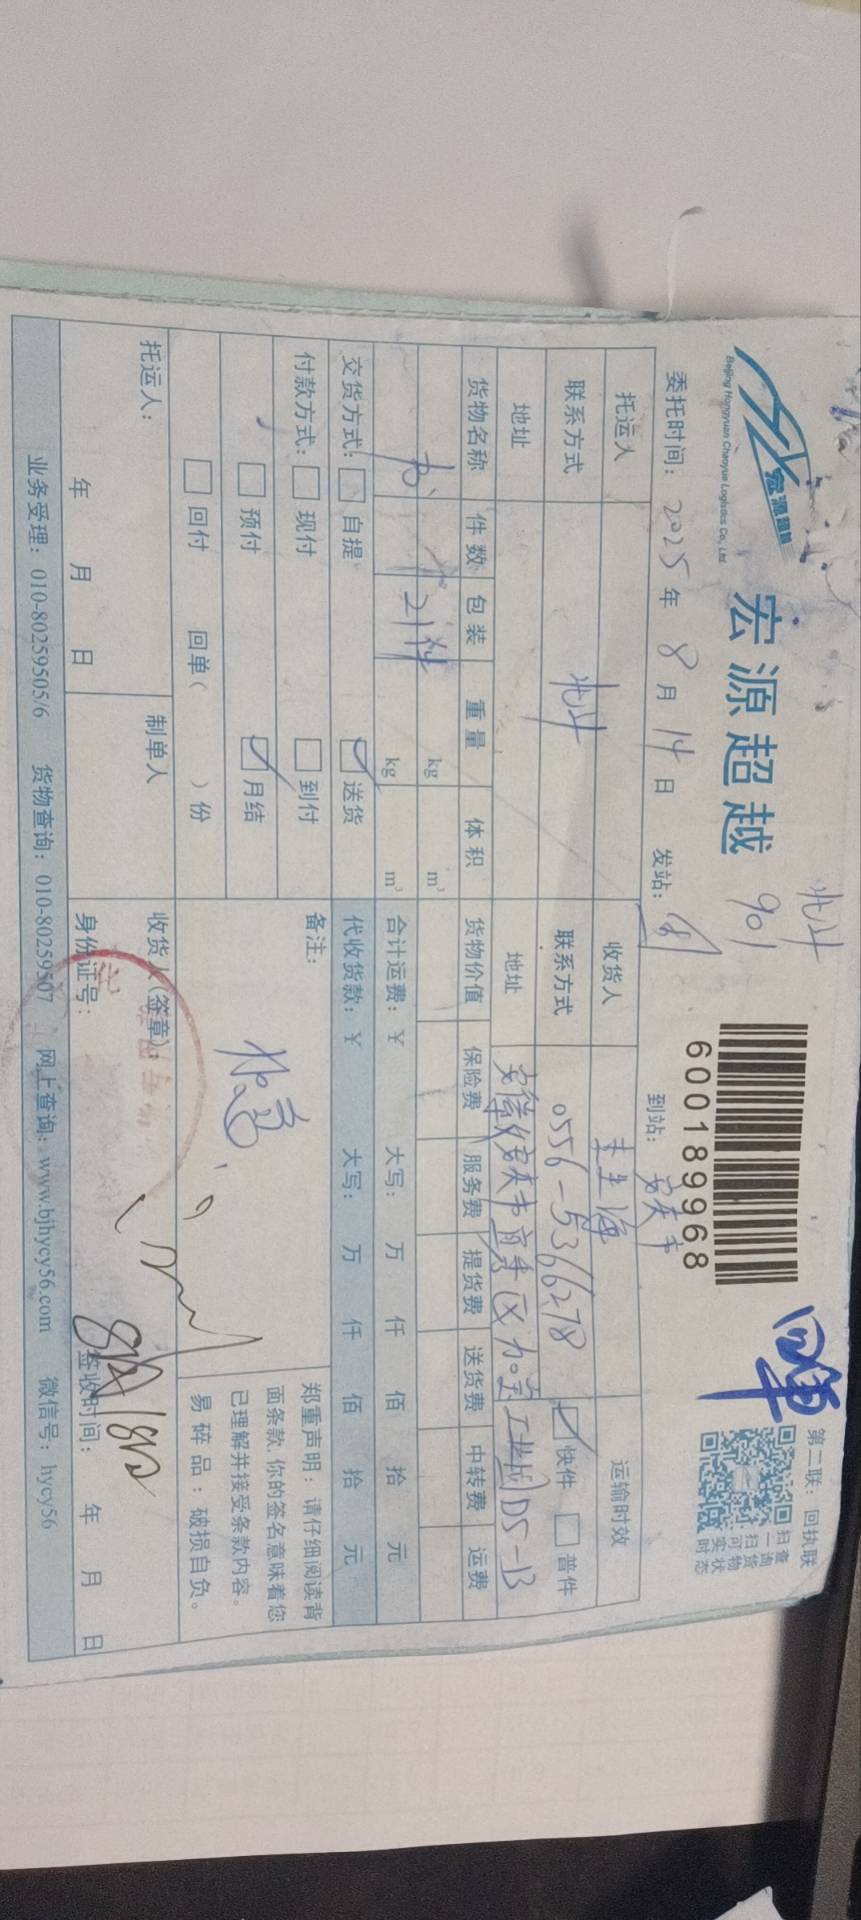 北斗
901
宏源超越
宏源超越
Beijing Hongyuan Chaoyue Logistics Co., Ltd.
6001899968
回单
第二联：回执联
扫一扫可实时
查询货物状态
委托时间：2025年8月14日 发站： 到站：安庆市
托运人 收货人 运输时效
联系方式 北斗 联系方式 0556-5366278 快件 普件
地址 地址 安徽省安庆市 区 工业园D5-B
货物名称 件数 包装 重量 体积 货物价值 保险费 服务费 提货费 送货费 中转费 运费
kg m³
书 21件 kg m³ 合计运费：¥ 大写： 万 仟 佰 拾 元
交货方式： 自提 送货 代收货款：¥ 大写： 万 仟 佰 拾 元
付款方式： 现付 到付 备注：
预付 月结
回付 回单（ ）份
郑重声明：请仔细阅读背
面条款，你的签名意味着您
已理解并接受条款内容。
易碎品：破损自负。
托运人： 制单人 收货人（签章）：
年 月 日 身份证号： 签收时间： 年 月 日
业务受理：010-80259505/6 货物查询：010-80259507 网上查询：www.bjhycy56.com 微信号：hycy56